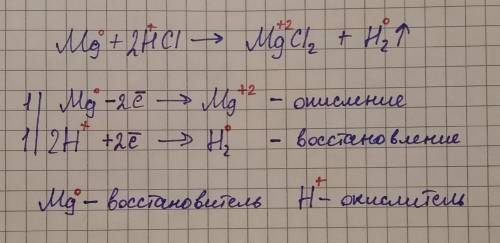 Mg⁰ + 2H⁺Cl → Mg⁺²Cl₂ + H₂⁰↑
1| Mg⁰ - 2ē → Mg⁺² - окисление
1| 2H⁺ + 2ē → H₂⁰ - восстановление
Mg⁰ - восстановитель H⁺ - окислитель